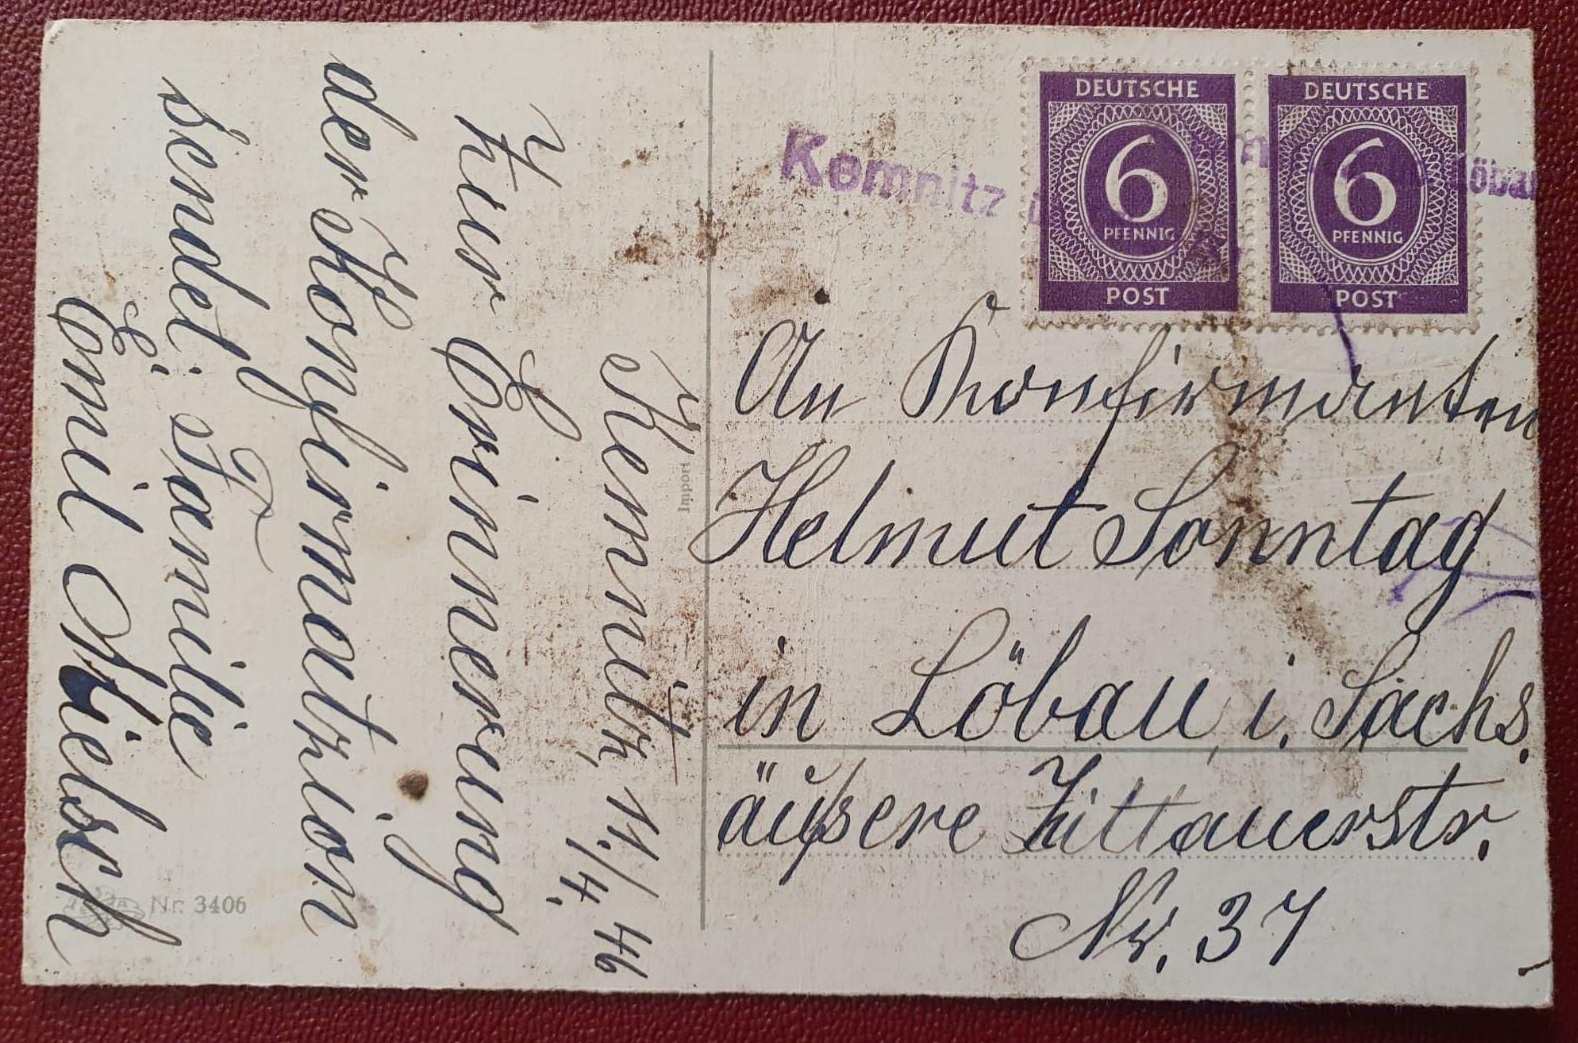 Kemnitz, 11./4. 46
Zur Erinnerung
der Konfirmation
sendet: Familie
Emil Mielsch
Nr. 3406
Import
Kemnitz
Löbau
DEUTSCHE
6
PFENNIG
POST
DEUTSCHE
6
PFENNIG
POST
An Konfirmanten
Helmut Sonntag
in Löbau i. Sachs.
äußere Zittauerstr.
Nr. 37